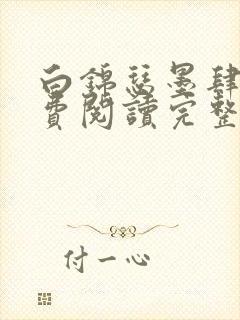 白錦瑟墨肆
費閱讀完整
付一心